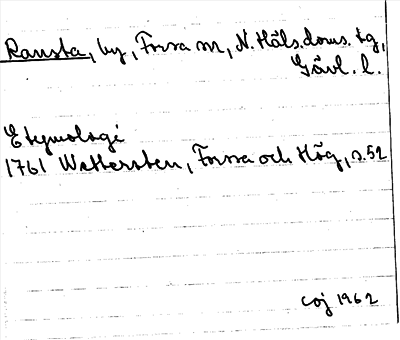 Ransta, by, Forsa sn, N. Häls. doms. tg,
Gävl. l.
Etymologi
1761 Wettersten, Forssa och Hög, s. 52
coj 1962